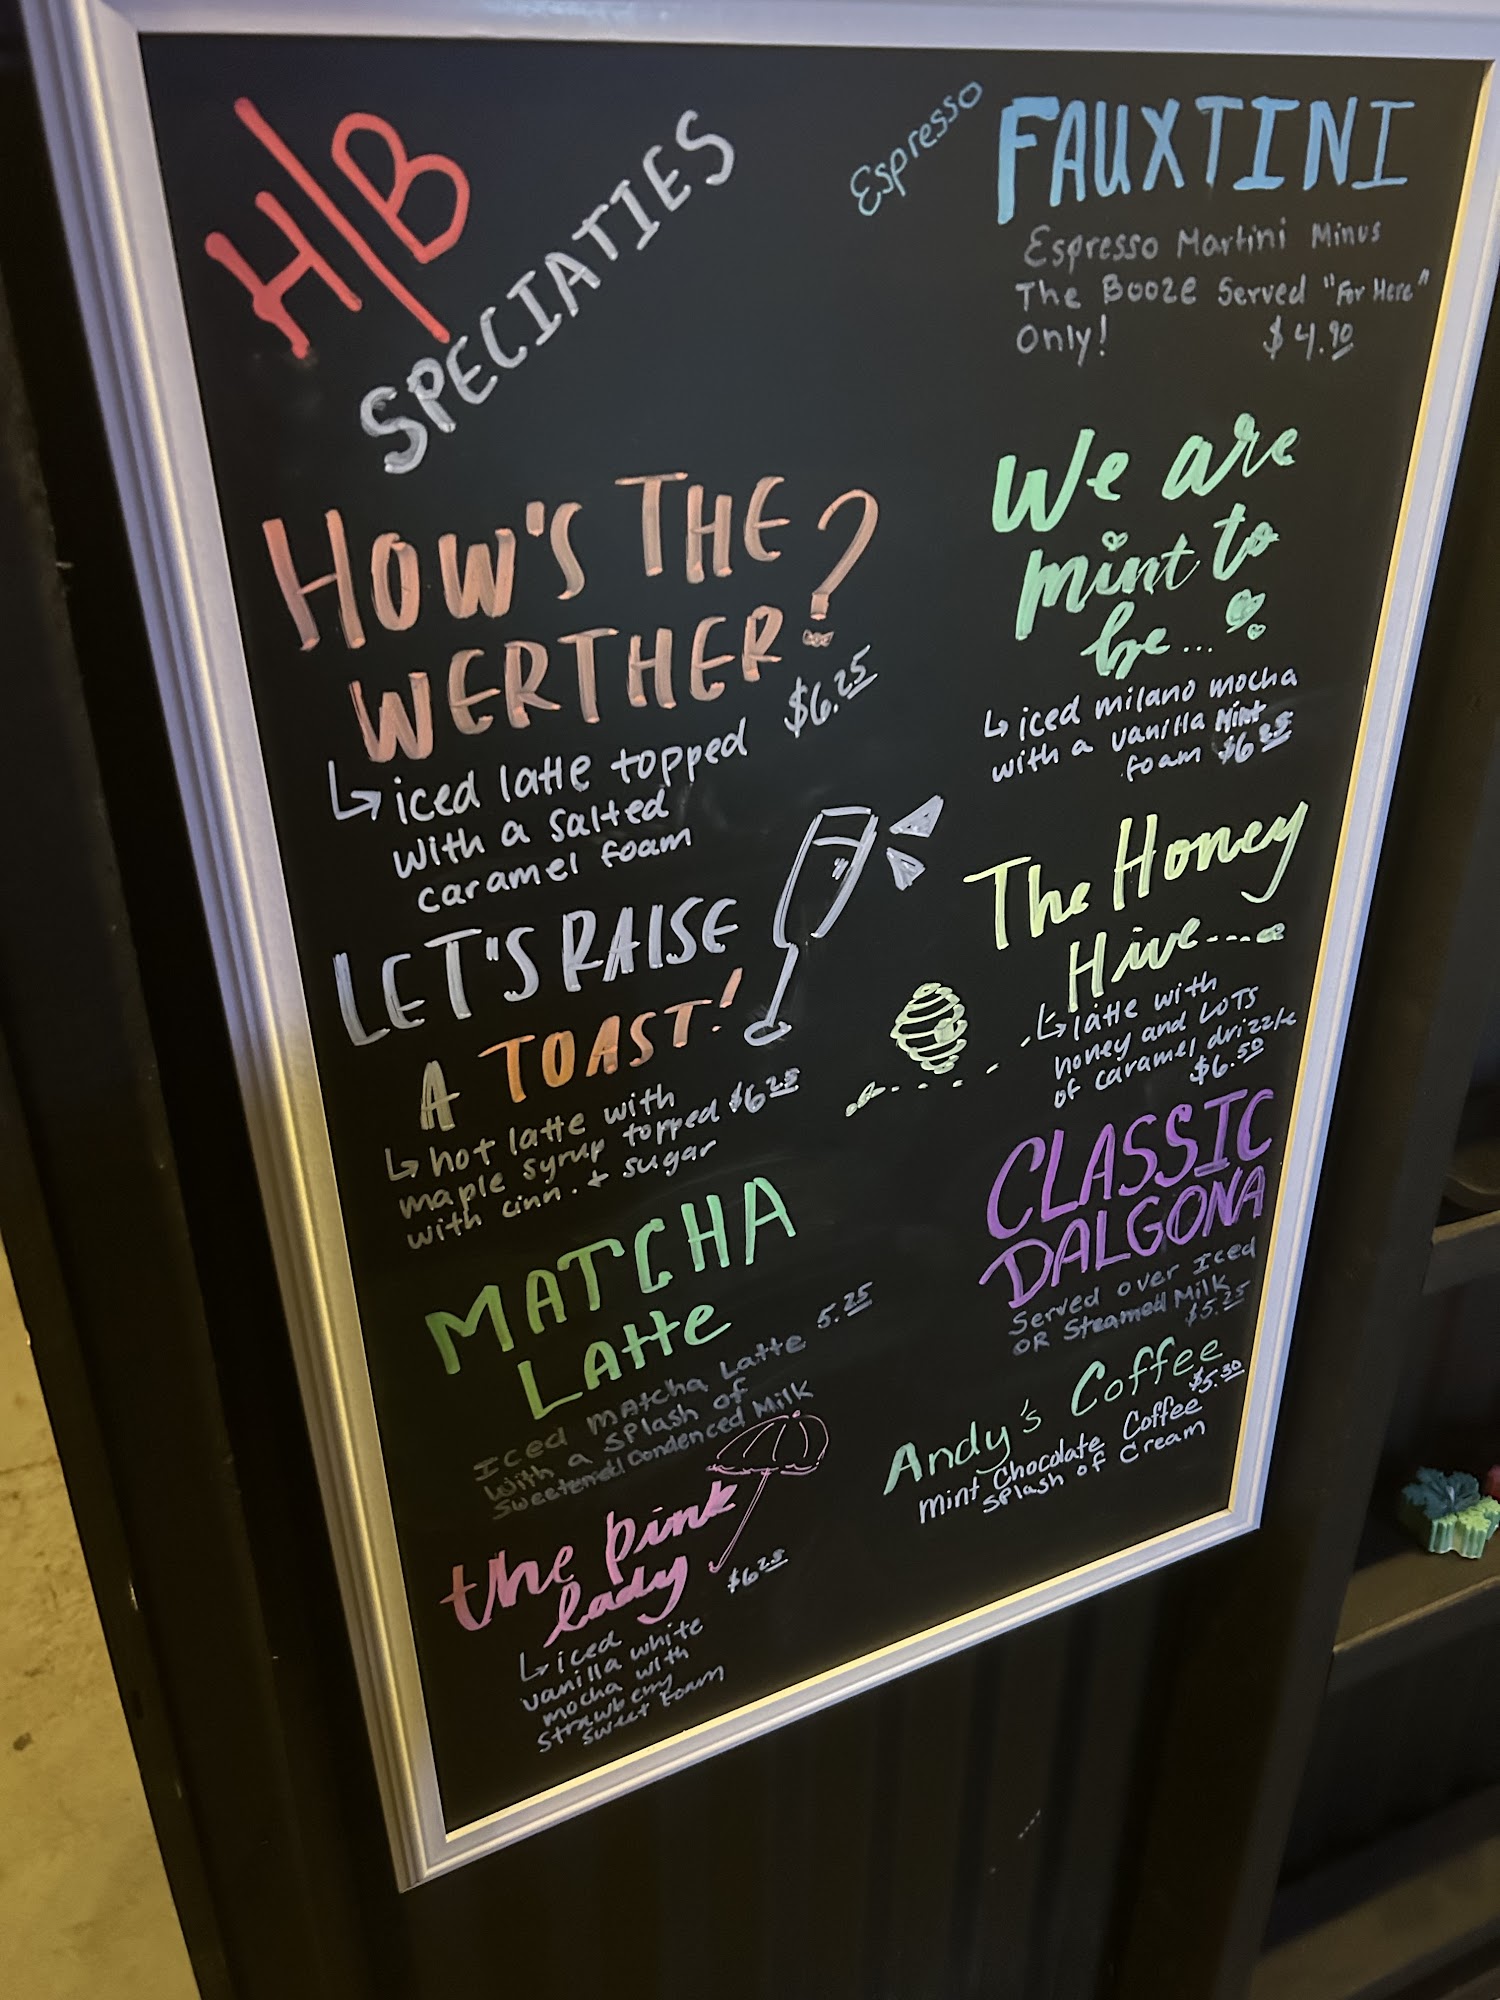 H/B
SPECIATIES
HOW'S THE
WERTHER?
$6.25
iced latte topped
with a salted
caramel foam
LET'S RAISE
A TOAST!
hot latte with
maple syrup topped $6.25
with cinn. + sugar
MATCHA
LATTE
5.25
Iced Matcha Latte
with a splash of
sweetened condenced Milk
the pink
lady
$6.25
iced
vanilla white
mocha with
strawberry
sweet foam
Espresso
FAUXTINI
Espresso Martini Minus
The Booze Served "For Here"
Only! $4.90
We are
mint to
be...
iced milano mocha
with a vanilla Mint
foam $6.25
The Honey
Hive....
latte with
honey and LOTS
of caramel drizzle
$6.50
CLASSIC
DALGONA
Served over Iced
OR Steamed Milk
$5.25
Andy's Coffee
$5.50
Mint Chocolate Coffee
splash of cream